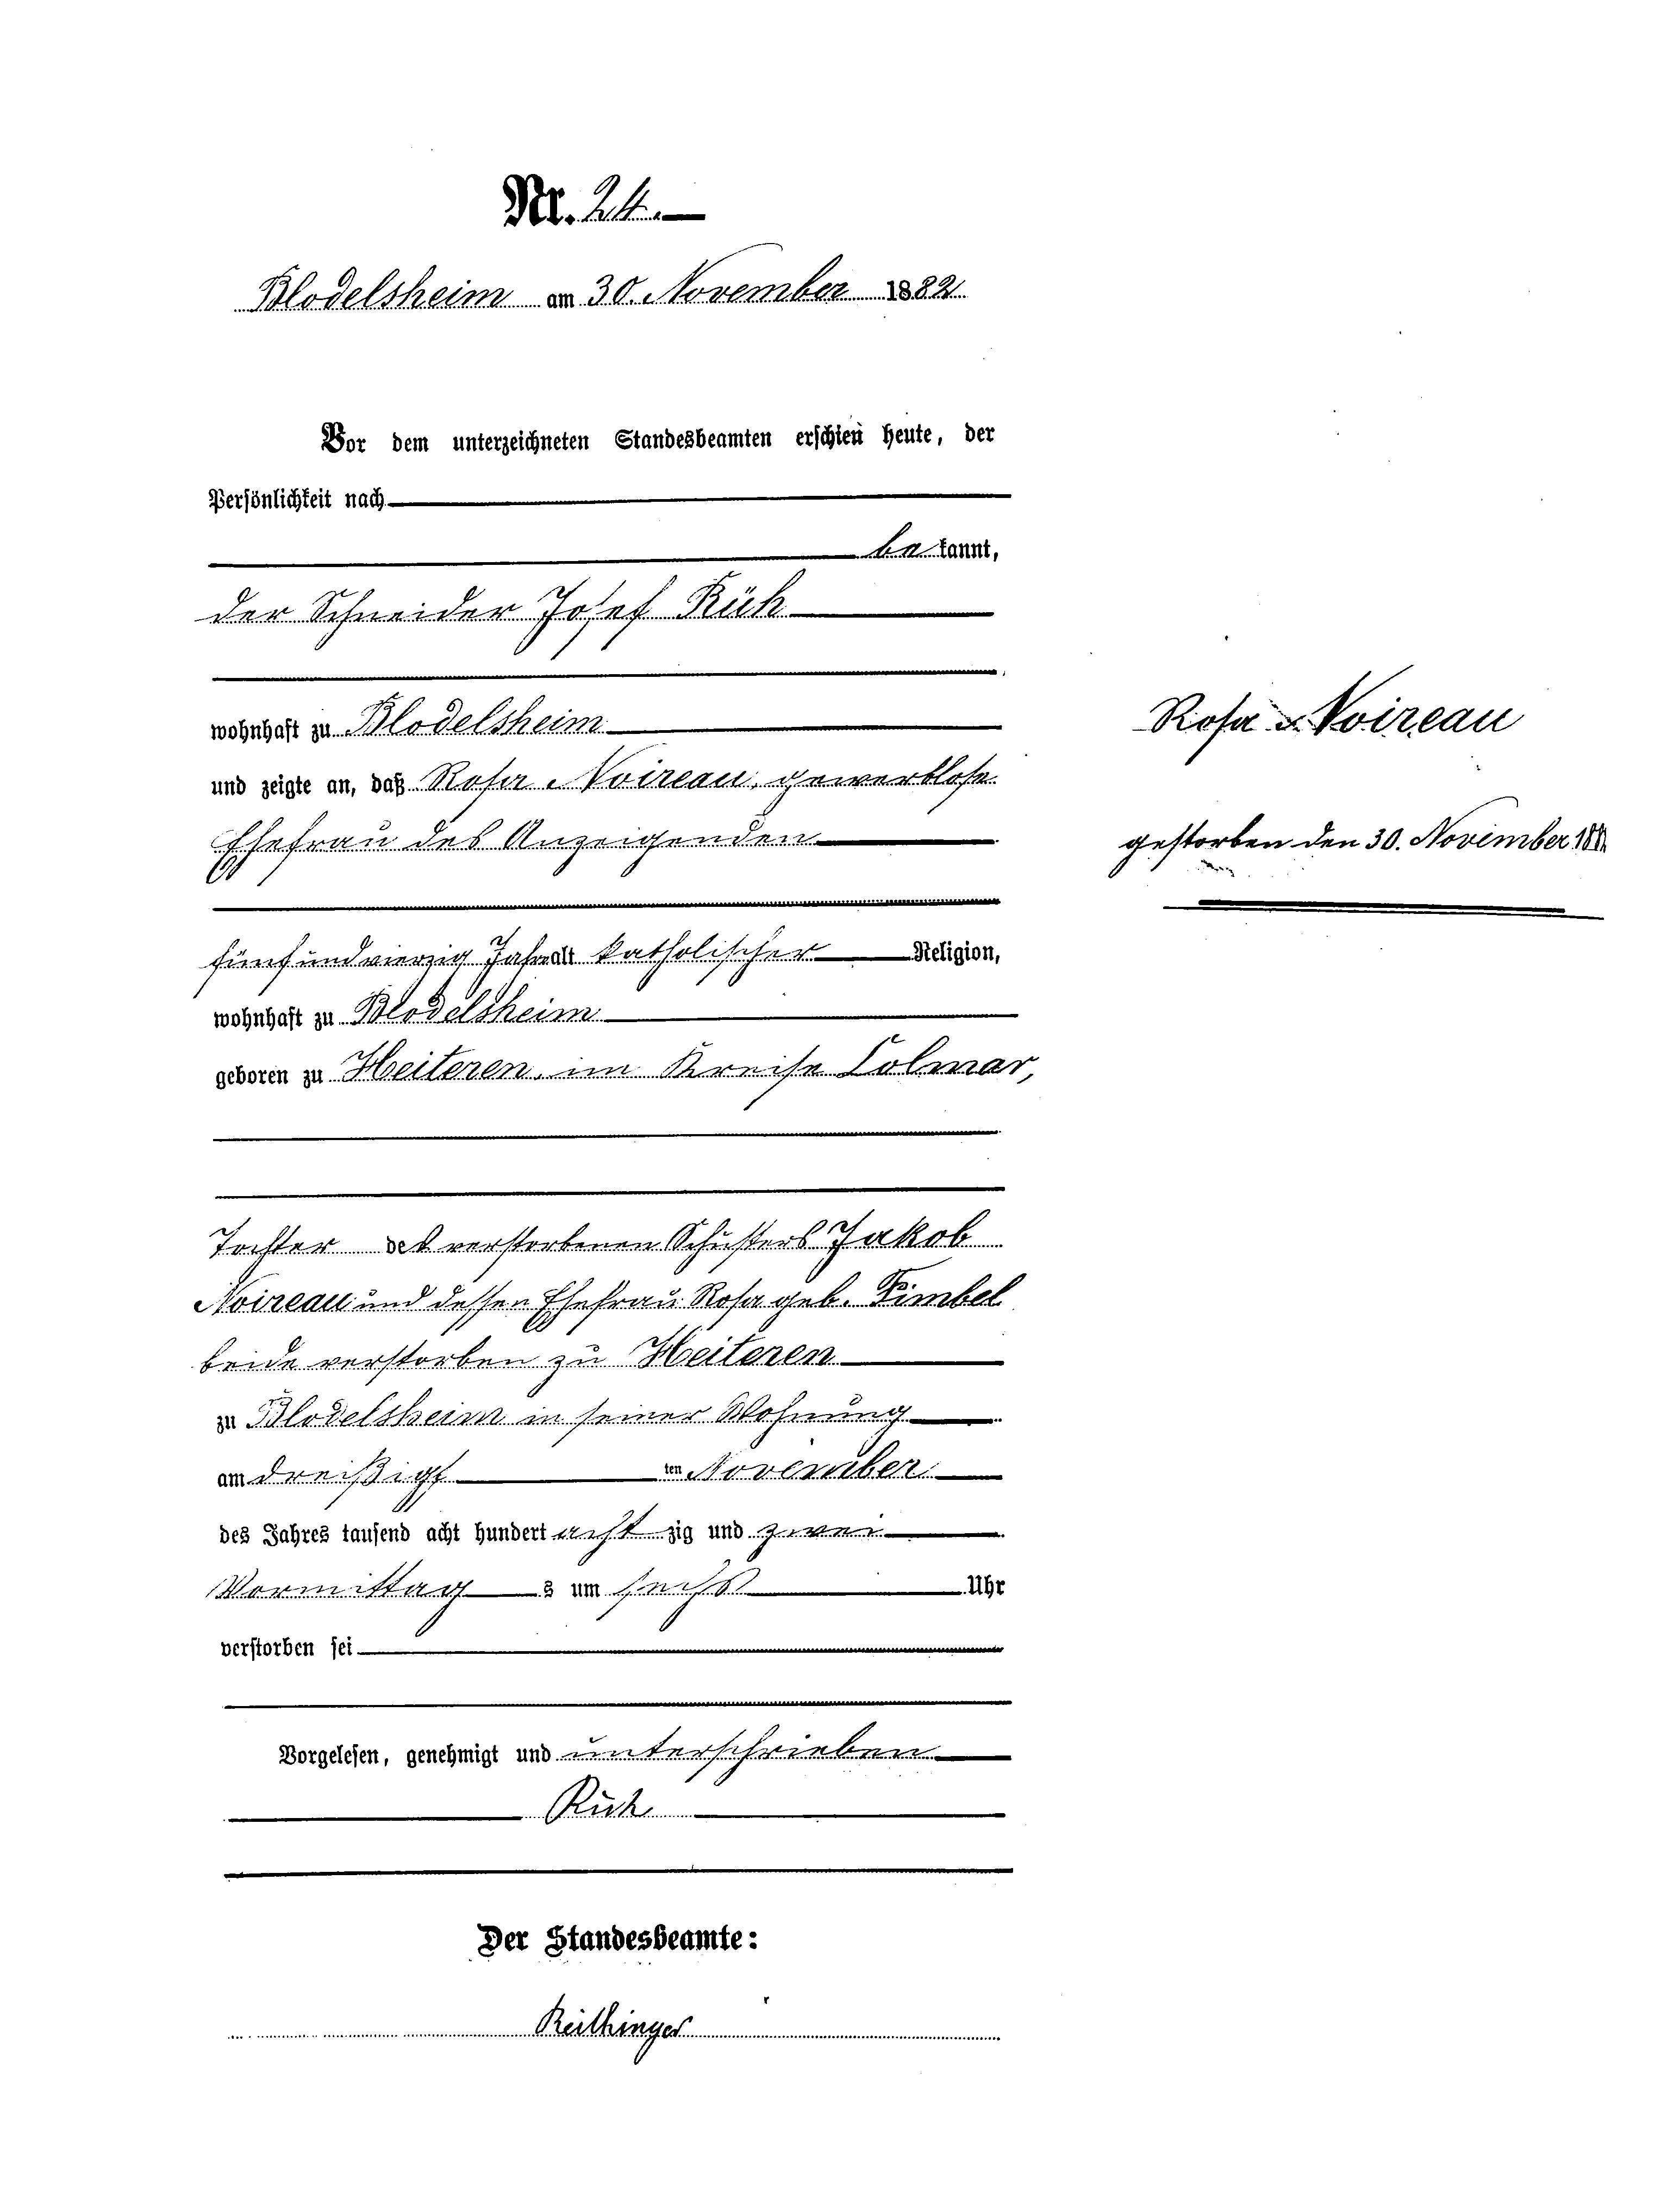 Nr. 24.
Blodelsheim am 30. November 1882
Vor dem unterzeichneten Standesbeamten erschien heute, der
Persönlichkeit nach
bekannt,
der Schneider Josef Rüh
wohnhaft zu Blodelsheim
und zeigte an, daß Rosa Noireau, gewerblose
Ehefrau des Anzeigenden
fünfundvierzig Jahre alt katholischer Religion,
wohnhaft zu Blodelsheim
geboren zu Heiteren, im Kreise Colmar,
Tochter des verstorbenen Schusters Jakob
Noireau und dessen Ehefrau Rosa geb. Fimbel
beide verstorben zu Heiteren
zu Blodelsheim in seiner Wohnung
am dreißigsten November
des Jahres tausend acht hundert achtzig und zwei
Vormittags um sechs Uhr
verstorben sei
Vorgelesen, genehmigt und unterschrieben
Rüh
Der Standesbeamte:
Reithinger
Rosa Noireau
gestorben den 30. November